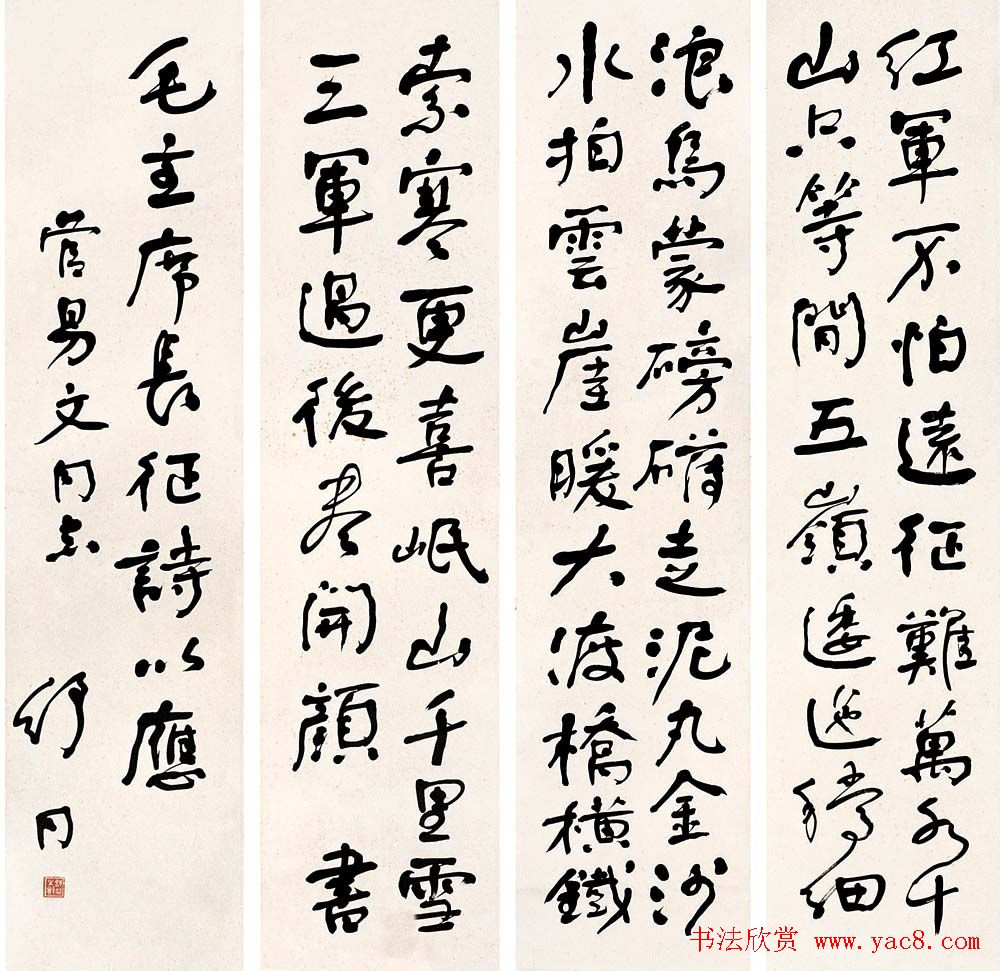 紅軍不怕遠征難萬水千
山只等閒五嶺逶迤騰細
浪烏蒙磅礴走泥丸金沙
水拍雲崖暖大渡橋橫鐵
索寒更喜岷山千里雪
三軍過後尽開顔 書
毛主席長征詩以應
管易文同志
舒同
书法欣赏 www.yac8.com